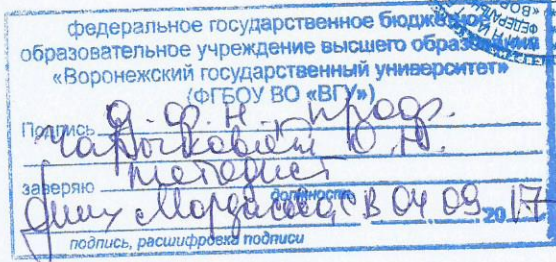 федеральное государственное бюджетное
образовательное учреждение высшего образования
«Воронежский государственный университет»
(ФГБОУ ВО «ВГУ»)
Подпись д. ф. н. проф.
О. Н.
методист
заверяю
должность
С В 04 09 20 17
подпись, расшифровка подписи